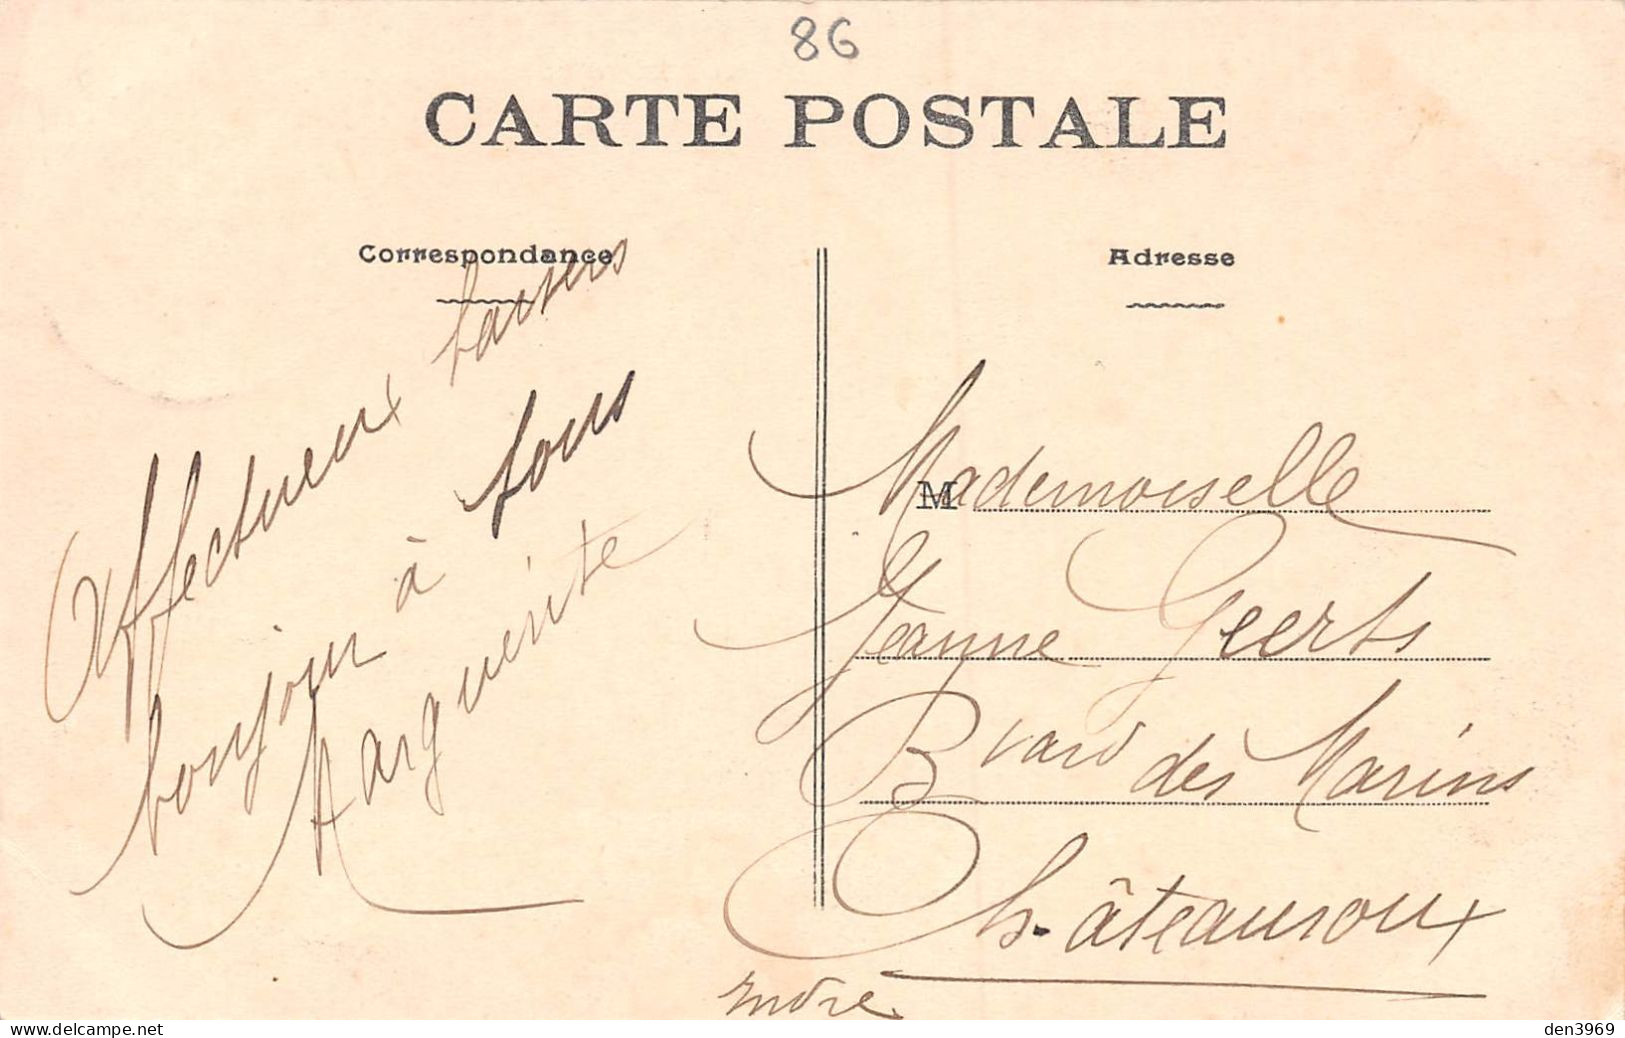 86
CARTE POSTALE
Correspondance
Affectueux baisers
bonjour à tous
Marguerite
Adresse
Mademoiselle
Jeanne Geerts
Bvard des Marins
Châteauroux
Indre.
delcampe.net
den3969